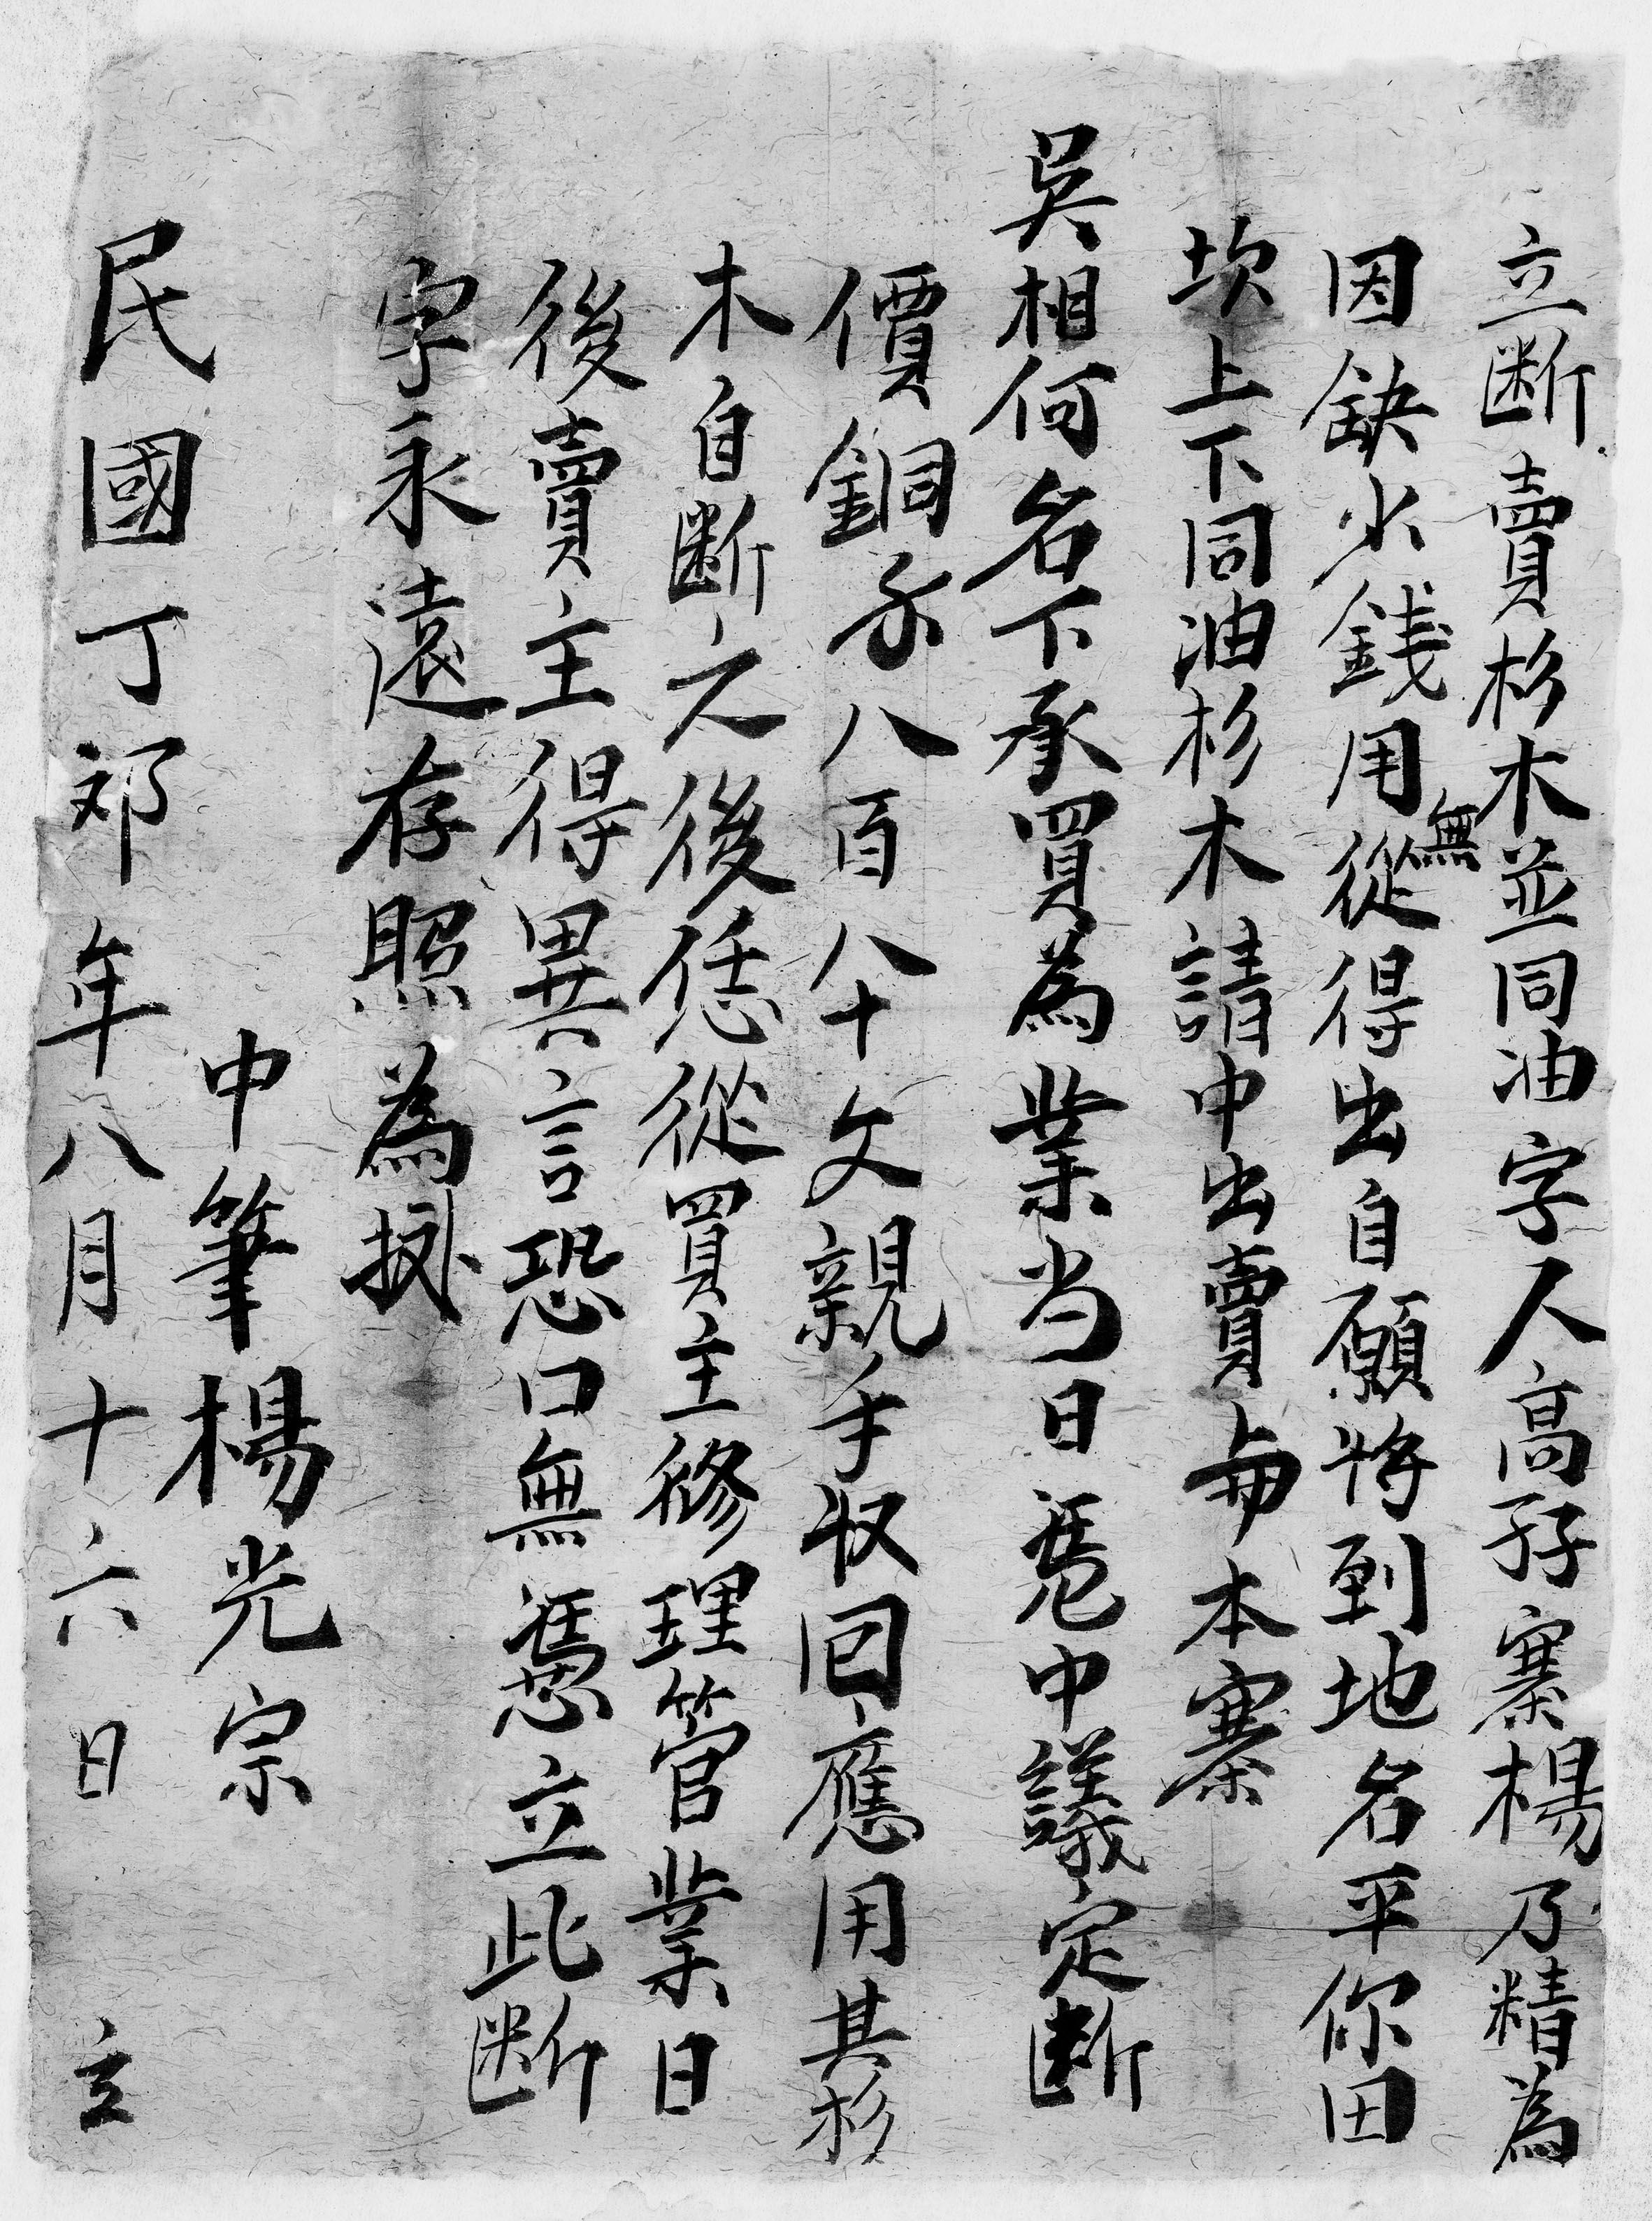 立断賣杉木並同油字人高孖寨楊乃精為
因缺少錢用無從得出自願将到地名平你田
坎上下同油杉木請中出賣與本寨
吳相何名下承買為業当日凴中議定断
價銅子八百八十文親手收回應用其杉
木自断之後恁從買主修理管業日
後賣主得異言恐口無憑立此断
字永遠存照為拠
中筆楊光宗
民國丁夘年八月十六日 立